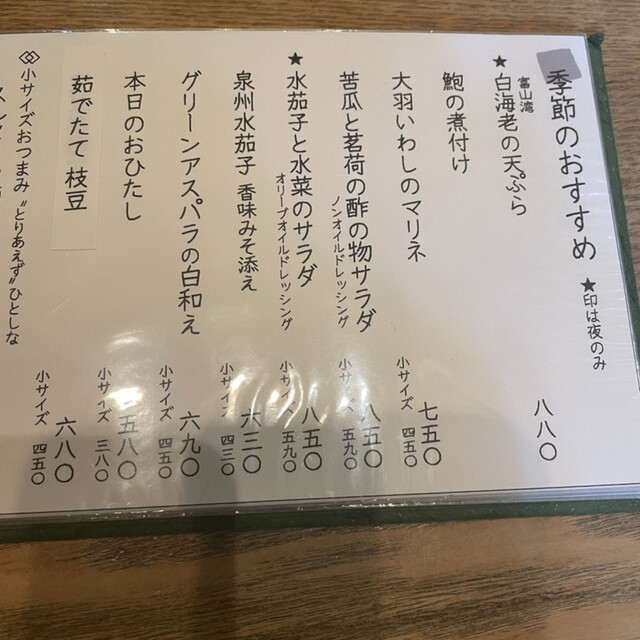 季節のおすすめ
★印は夜のみ
★富山湾 白海老の天ぷら 八八〇
鮑の煮付け
大羽いわしのマリネ 七五〇
小サイズ 四五〇
苦瓜と茗荷の酢の物サラダ 八五〇
ノンオイルドレッシング
小サイズ 五九〇
★水茄子と水菜のサラダ 八五〇
オリーブオイルドレッシング
小サイズ 五九〇
泉州水茄子 香味みそ添え 六三〇
小サイズ 四三〇
グリーンアスパラの白和え 六九〇
小サイズ 四五〇
本日のおひたし 五八〇
小サイズ 三八〇
茹でたて 枝豆 六八〇
小サイズ 四五〇
小サイズおつまみ“とりあえず”ひとしな